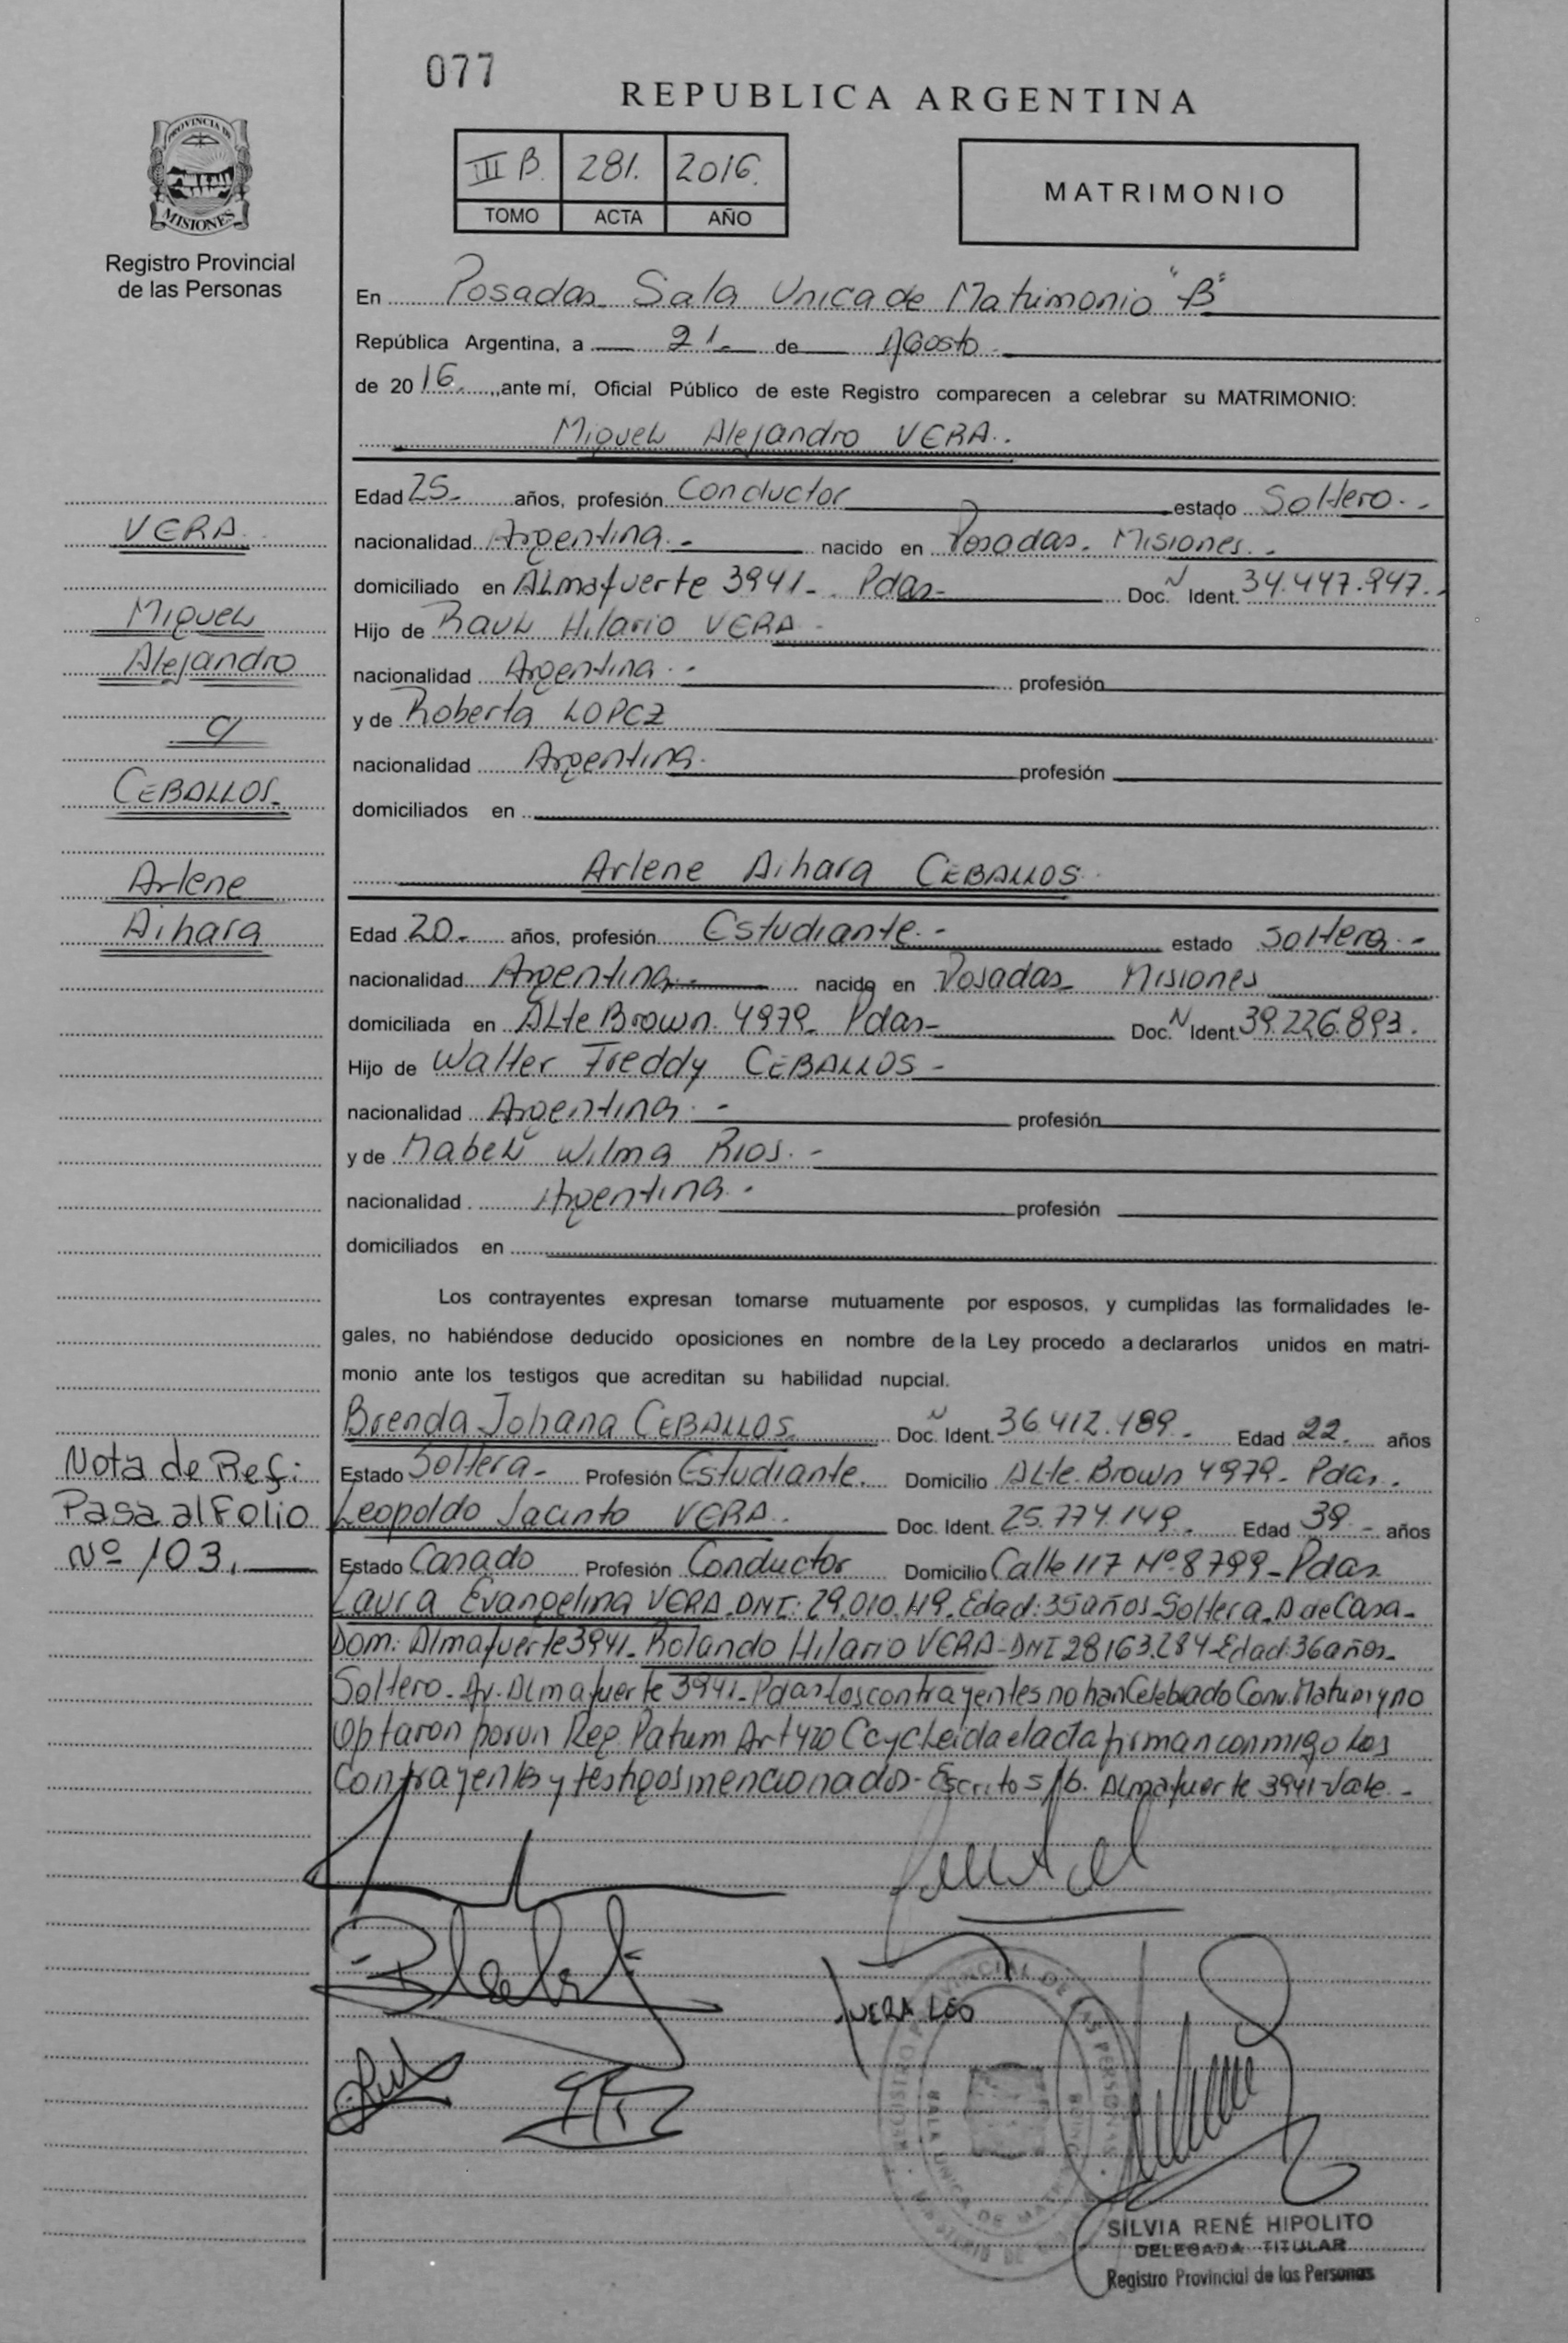 077
REPUBLICA ARGENTINA
PROVINCIA DE
MISIONES
Registro Provincial
de las Personas
III B. 281. 2016.
TOMO ACTA AÑO
MATRIMONIO
En Posadas Sala Unica de Matrimonio "B"
República Argentina, a 21 de Agosto
de 2016, ante mí, Oficial Público de este Registro comparecen a celebrar su MATRIMONIO:
Miguel Alejandro VERA.
Edad 25- años, profesión Conductor estado Soltero.-
nacionalidad Argentina.- nacido en Posadas. Misiones.-
domiciliado en Almafuerte 3941-. Pdas- Doc. N Ident. 34.447.947.-
Hijo de Raul Hilario VERA-
nacionalidad Argentina.- profesión
y de Roberta LOPEZ
nacionalidad Argentina. profesión
domiciliados en
VERA
Miguel
Alejandro
c/
CEBALLOS.
Arlene
Aihara
Arlene Aihara CEBALLOS.
Edad 20- años, profesión Estudiante.- estado Soltera.-
nacionalidad Argentina.- nacida en Posadas- Misiones
domiciliada en Alte Brown. 4979- Pdas- Doc. N Ident. 39.226.893.
Hijo de Walter Freddy CEBALLOS-
nacionalidad Argentina.- profesión
y de Mabel Wilma RIOS.-
nacionalidad Argentina.- profesión
domiciliados en
Los contrayentes expresan tomarse mutuamente por esposos, y cumplidas las formalidades le-
gales, no habiéndose deducido oposiciones en nombre de la Ley procedo a declararlos unidos en matri-
monio ante los testigos que acreditan su habilidad nupcial.
Brenda Johana CEBALLOS Doc. N Ident. 36.412.489.- Edad 22. años
Estado Soltera- Profesión Estudiante. Domicilio Alte. Brown 4979- Pdas.
Leopoldo Jacinto VERA. Doc. Ident. 25.774.149. Edad 39- años
Estado Casado Profesión Conductor Domicilio Calle 117 Nº 8799- Pdas
Nota de Ref:
Pasa al Folio
Nº 103.
Laura Evangelina VERA-DNI: 29.010.119. Edad: 35 años-Soltera-A de Casa-
Dom: Almafuerte 3941- Rolando Hilario VERA-DNI 28163.284-Edad:36 años-
Soltero- Av. Almafuerte 3941- Pdas los contrayentes no han Celebrado Conv. Matrim y no
Optaron por un Reg. Patrim Art 420 CcyC Leida el acta firman conmigo los
Contrayentes y testigos mencionados- Escrito s/b. Almafuerte 3941-Vale.-
VERA LEO
SILVIA RENÉ HIPOLITO
DELEGADA TITULAR
Registro Provincial de las Personas